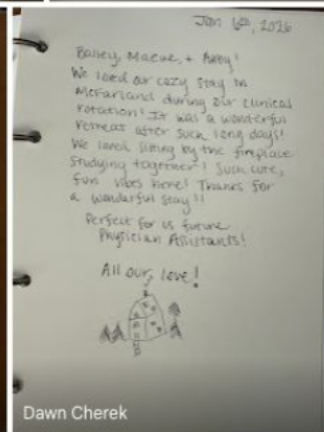 Jan 6th, 2026
Bailey, Maeve, + Abby!
We loved our cozy stay in
McFarland during our clinical
rotation! It was a wonderful
retreat after such long days!
We loved sitting by the fireplace
studying together! Such cute,
fun vibes here! Thanks for
a wonderful stay!!
Perfect for us future
Physician Assistants!
All our, love!
Dawn Cherek